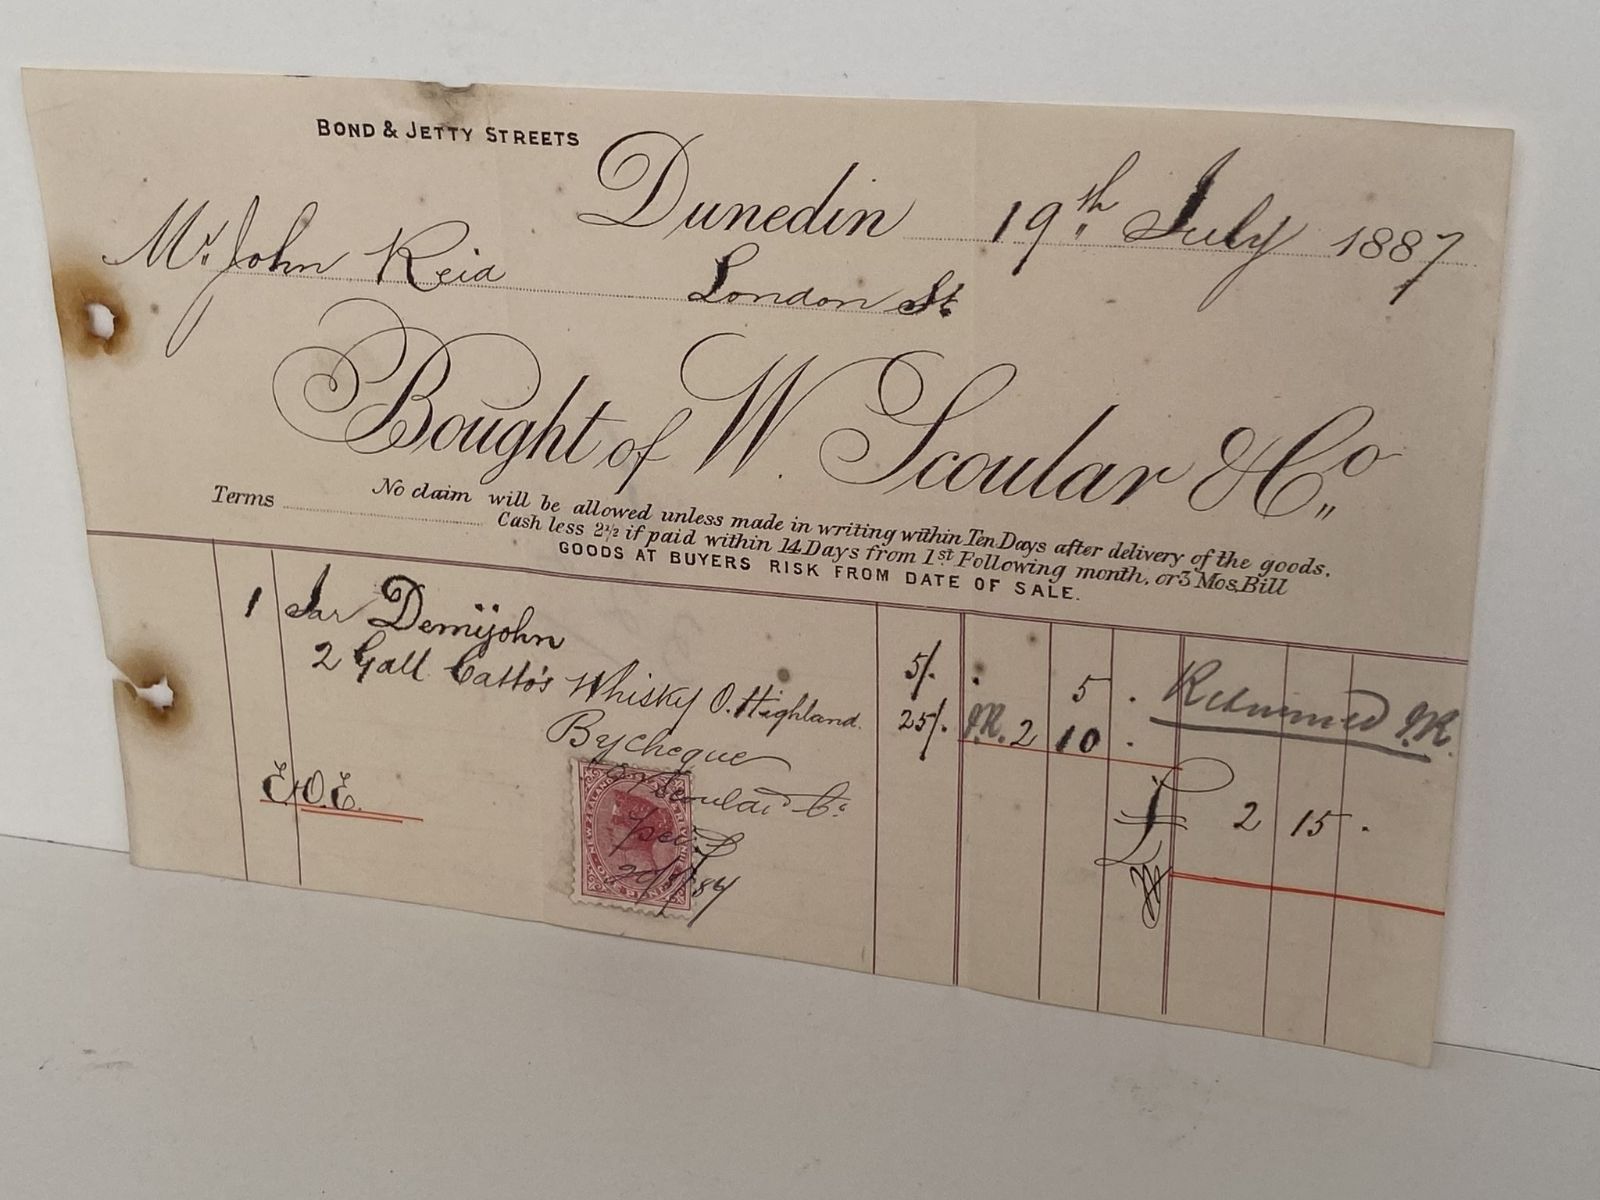 BOND & JETTY STREETS
Dunedin 19th July 1887
Mr John Reid
London St.
Bought of W. Scoular & Co.
Terms
No claim will be allowed unless made in writing within Ten Days after delivery of the goods.
Cash less 2½ if paid within 14 Days from 1st Following month, or 3 Mos. Bill
GOODS AT BUYERS RISK FROM DATE OF SALE.
1 Jar Demijohn 5/. 5 .
2 Gall Catto's Whisky O. Highland 25/. J.R. 2 10 .
Returned J.R.
By cheque
Scoular & Co
E.&O.E.
£ 2 15 .
NEW ZEALAND
ONE PENNY